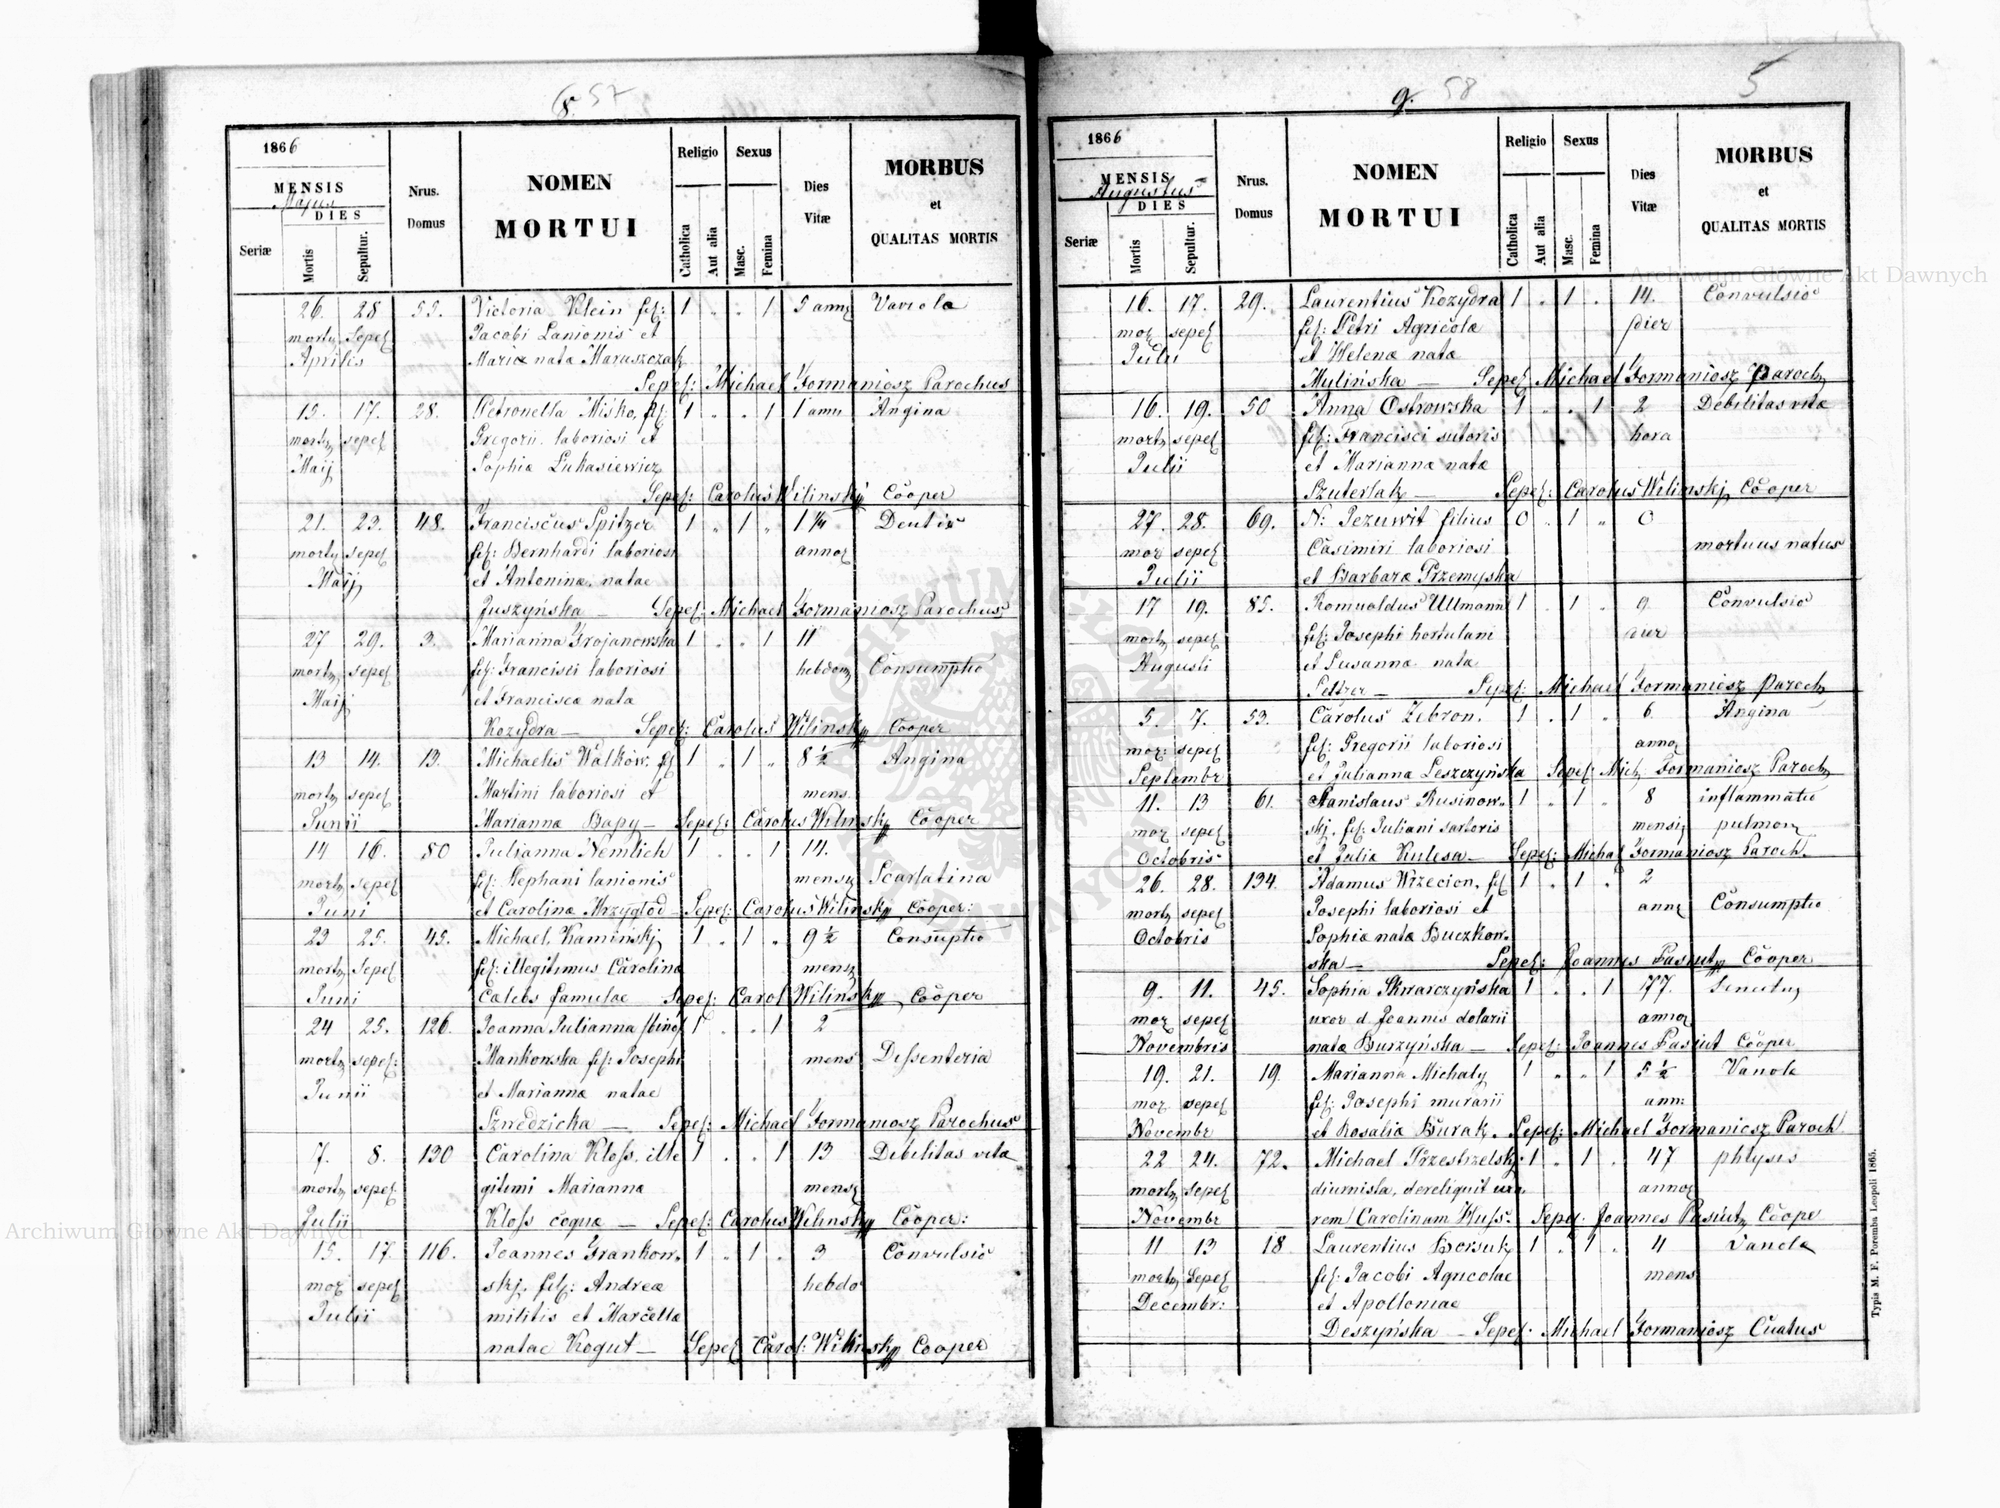 8. 57
1866
MENSIS
Majus
DIES
Seriæ
Mortis
Sepultur.
Nrus.
Domus
NOMEN
MORTUI
Religio
Catholica
Aut alia
Sexus
Masc.
Femina
Dies
Vitæ
MORBUS
et
QUALITAS MORTIS
26. 28 55. Victoria Klein fil: 1 „ „ 1 5 ann Variola
mort Sepel Jacobi Lanionis et
Aprilis Mariæ nata Maruszczak
Sepel: Michael Formaniosz Parochus
15. 17. 28. Petronella Misko, fil 1 „ „ 1 1 ann Angina
mort sepel Gregorii laboriosi et
Maij Sophiæ Lukasiewicz
Sepel: Carolus Wilinskj Cooper
21. 23. 48. Franciscus Spitzer 1 „ 1 „ 1 1/4 Dentis
mort sepel fil: Bernhardi laboriosi annor
Maij et Antoninæ, natae
Juszyńska — Sepel: Michael Formaniosz Parochus
27 29. 3. Marianna Trojanowska 1 „ „ 1 11
mort sepel fil: Francisci laboriosi hebdom Consumptio
Maij et Franciscæ nata
Kozydra — Sepel: Carolus Wilinskj Cooper
13 14. 13. Michaelis Walkow. fil 1 „ 1 „ 8 1/2 Angina
mort sepel Martini laboriosi et mens.
Junii Mariannæ Bapy — Sepel: Carolus Wilinskj Cooper
14 16. 80 Julianna Nemlich 1 „ „ 1 14.
mort sepel fil: Stephani lanionis mens Scarlatina
Juni et Carolinæ Krzyglod — Sepel: Carolus Wilinskj Cooper:
23 25. 45. Michael Kaminskj 1 „ 1 „ 9 1/2 Consuptio
mort Sepel fil: illegitimus Carolinæ mens
Juni Calebs famulae Sepel: Carol Wilinskj Cooper
24 25. 126. Joanna Julianna /bino/ 1 „ „ 1 2
mort sepel: Mankowska fil: Josephi mens Dessenteria
Junii et Mariannæ natae
Szwedzicka — Sepel: Michael Formaniosz Parochus
7. 8. 130 Carolina Kloss, ille 1 „ „ 1 13 Debilitas vitæ
mort sepel gitimi Mariannæ mens
Julii Kloss coquæ — Sepel: Carolus Wilinskj Cooper:
15. 17. 116. Joannes Frankow- 1 „ 1 „ 3 Convulsio
mor sepel skj. fil: Andreæ hebdo
Julii militis et Marcellæ
natae Kogut — Sepel Carol: Wilinskj Cooper
9. 58
5
1866
MENSIS
Augustus
DIES
Seriæ
Mortis
Sepultur.
Nrus.
Domus
NOMEN
MORTUI
Religio
Catholica
Aut alia
Sexus
Masc.
Femina
Dies
Vitæ
MORBUS
et
QUALITAS MORTIS
16. 17. 29. Laurentius Kozydra 1 „ 1 „ 14. Convulsio
mor sepel fil: Petri Agricolæ dier
Julii et Helenæ nata
Mylińska — Sepel Michael Formaniosz Paroch
16. 19. 50 Anna Ostrowska 1 „ „ 1 2 Debilitas vitæ
mort sepel fil: Francisci sutoris hora
Julii et Mariannæ natæ
Szuterlak — Sepel: Carolus Wilinskj Cooper
27. 28. 69. N: Jezuwit filius 0 „ 1 „ 0
mor sepel Casimiri laboriosi mortuus natus
Julii et Barbaræ Przemyska
17 19. 85. Romualdus Ullmann 1 „ 1 „ 9 Convulsio
mort sepel fil: Josephi hortulani dier
Augusti et Susannæ nata
Peltzer — Sepel: Michael Formaniosz Paroch
5. 7. 53. Carolus Zebron. 1 „ 1 „ 6. Angina
mor: sepel fil: Gregorii laboriosi annor
Septembr et Julianna Leszczyńska Sepel: Mich, Formaniosz Paroch
11. 13 61. Stanislaus Rusinow- 1 „ 1 „ 8 inflammatio
mor sepel skj. fil: Juliani sartoris mensi pulmon
Octobris et Julia Kulesa — Sepel: Michael Formaniosz Paroch.
26. 28. 134. Adamus Wrzecion, fil 1 „ 1 „ 2
mort sepel Josephi laboriosi et ann Consumptio
Octobris Sophiæ natæ Buczkow-
ska — Sepel: Joannes Pasiut Cooper
9. 11. 45. Sophia Skwarczyńska 1 „ „ 1 77. Senectus
mor sepel uxor d. Joannis dolarii annor
Novembris natæ Burzyńska — Sepel: Joannes Pasiut Cooper
19. 21. 19. Marianna Michaly 1 „ „ 1 5 1/2 Variola
mor sepel fil: Josephi murarii ann:
Novembr et Rosaliæ Burak. Sepel: Michael Formaniosz Paroch
22 24. 72. Michael Strzestrzelskj 1 „ 1 „ 47 phtysis
mort sepel diurnista, dereliquit uxo- annor
Novembr rem Carolinam Huss. Sepel: Joannes Pasiut Coope
11 13 18. Laurentius Borsuk 1 „ 1 „ 4 Variola
mort Sepel fil: Jacobi Agricolae mens
Decembr: et Apolloniae
Deszyńska — Sepel: Michael Formaniosz Curatus
Typis M. F. Poremba Leopoli 1865.
Archiwum Główne Akt Dawnych
Archiwum Główne Akt Dawnych
ARCHIWUM GŁÓWNE AKT DAWNYCH